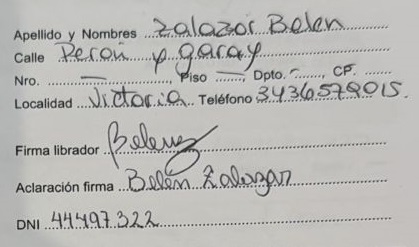 Apellido y Nombres Zalazar Belen
Calle Peron y garay
Nro. — Piso — Dpto. - CP.
Localidad Victoria Teléfono 3436579015
Firma librador Belenz
Aclaración firma Belén Zalazar
DNI 44497322